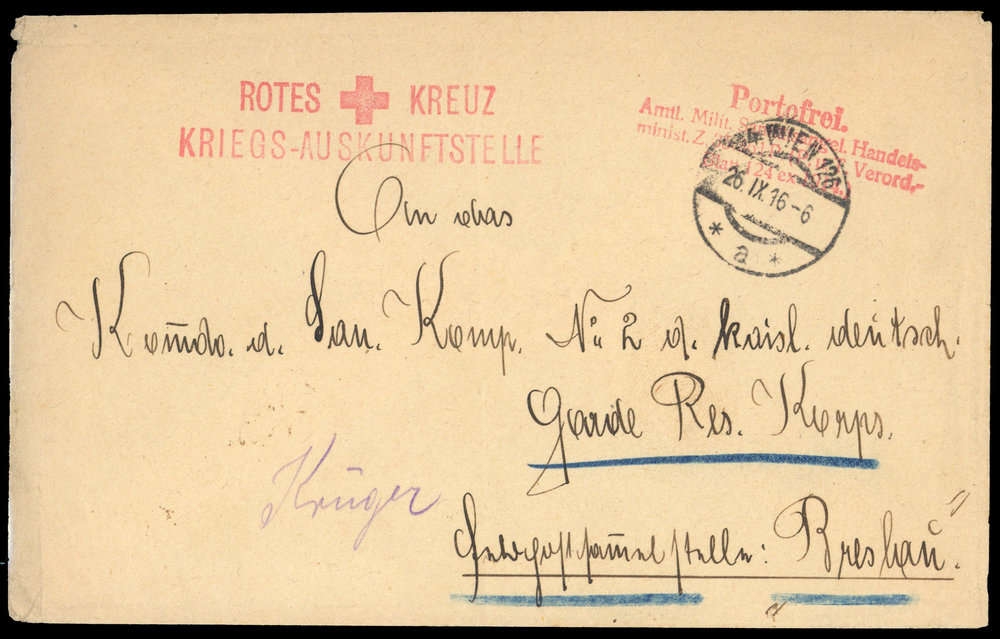 ROTES KREUZ
KRIEGS-AUSKUNFTSTELLE
Portofrei.
Amtl. Milit. Handels-
minist. Z. Verord.-
WIEN 126
26.IX.16-6
* a *
An das
Komdo. d. San. Komp. No 2 d. kaisl. deutsch.
Garde Res. Korps.
Krüger
Feldpostsammelstelle: Breslau.